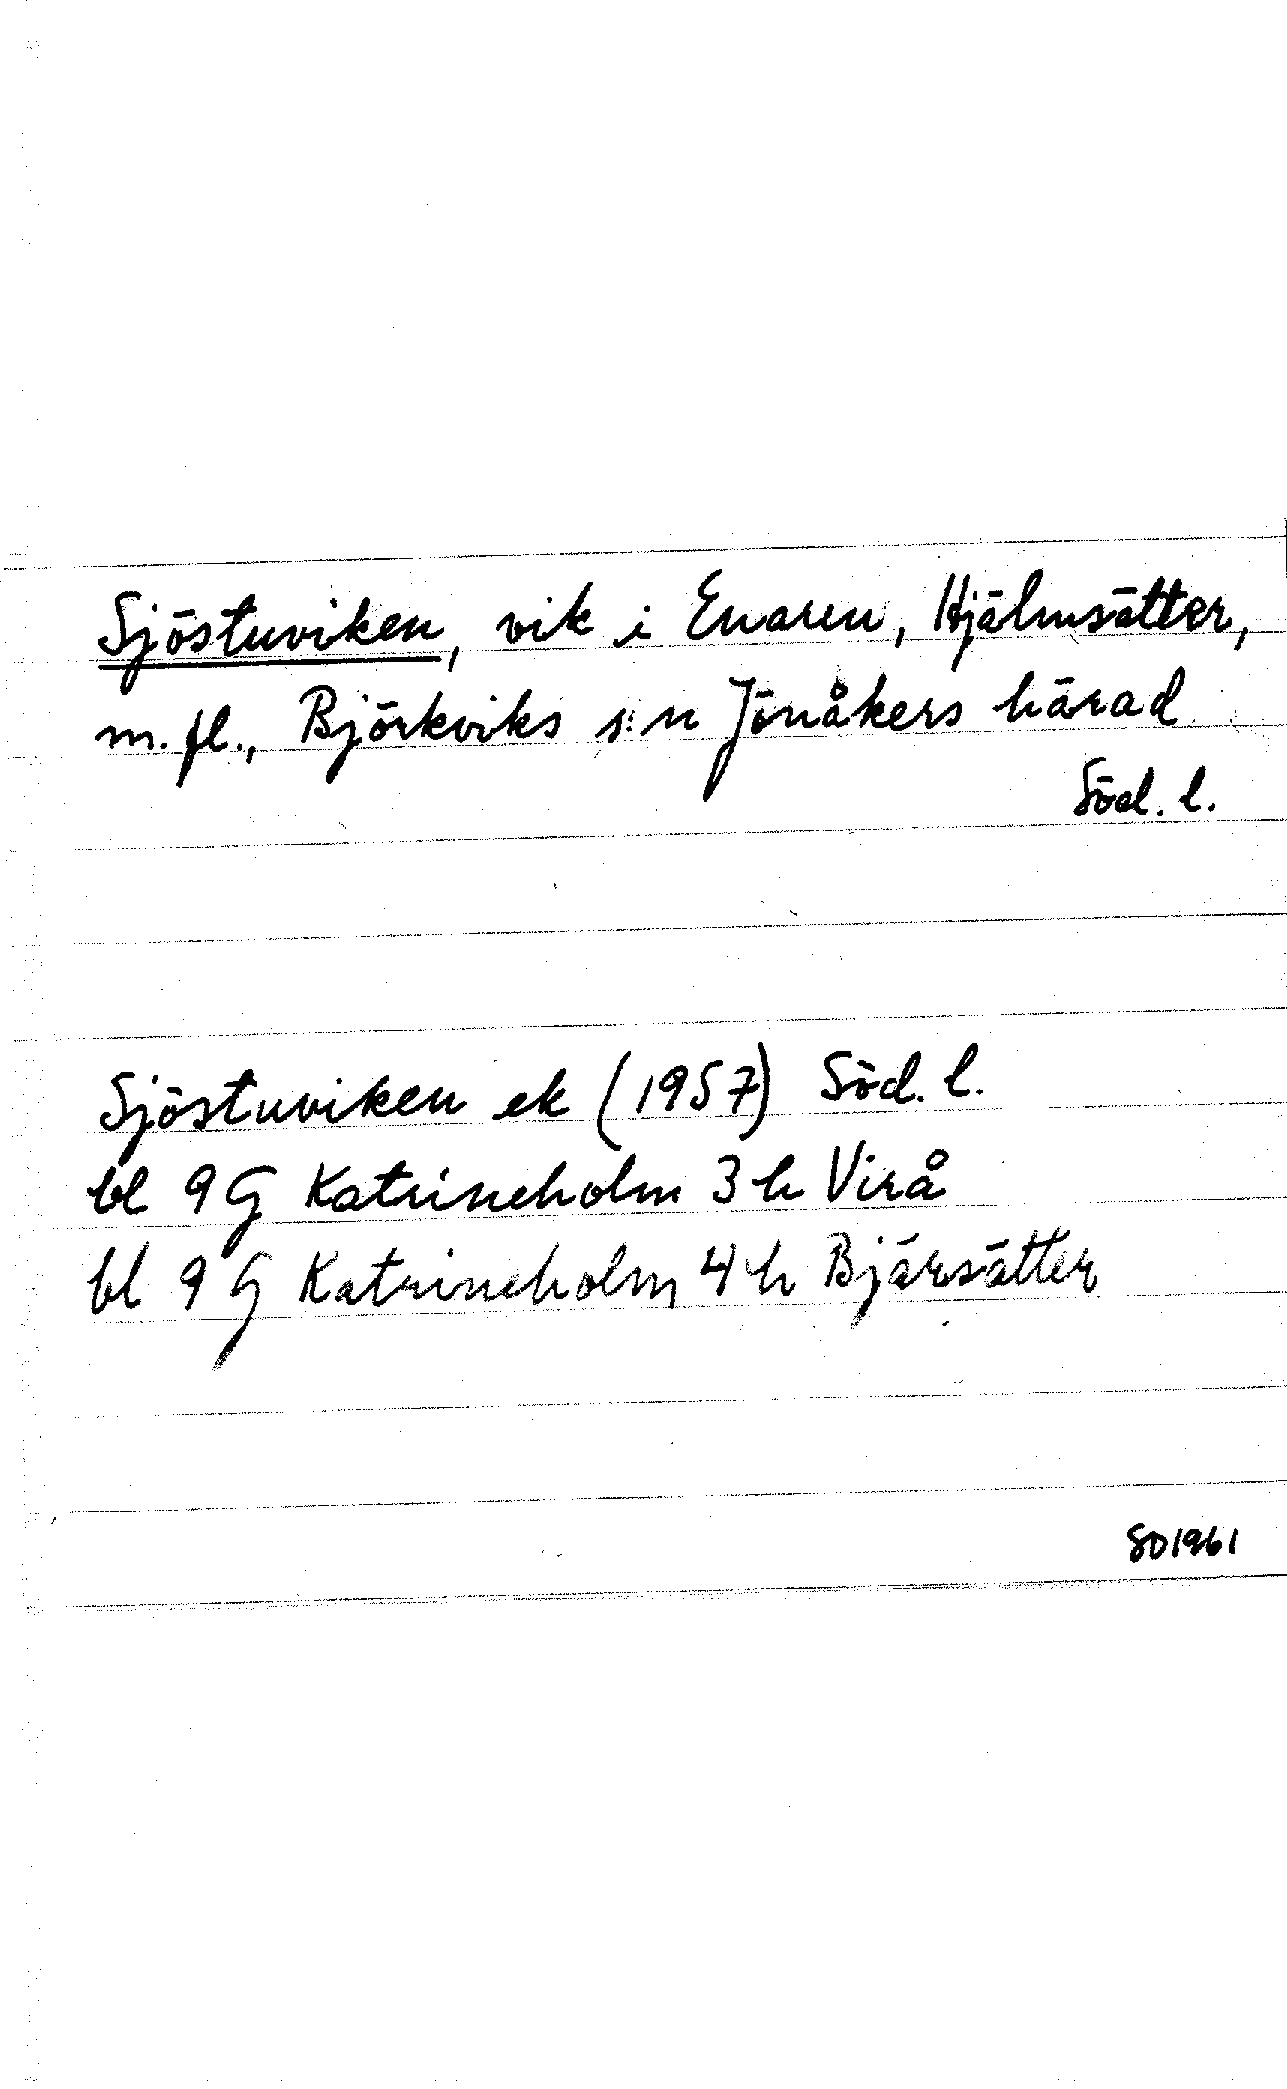 Sjöstuviken, vik i Enaren, Hjälmsätter,
m. fl., Björkviks s:n Jönåkers härad
Söd. l.
Sjöstuviken ek (1957) Söd. l.
bl 9 G Katrineholm 3 h Virå
bl 9 G Katrineholm 4 h Bjärsätter
801961